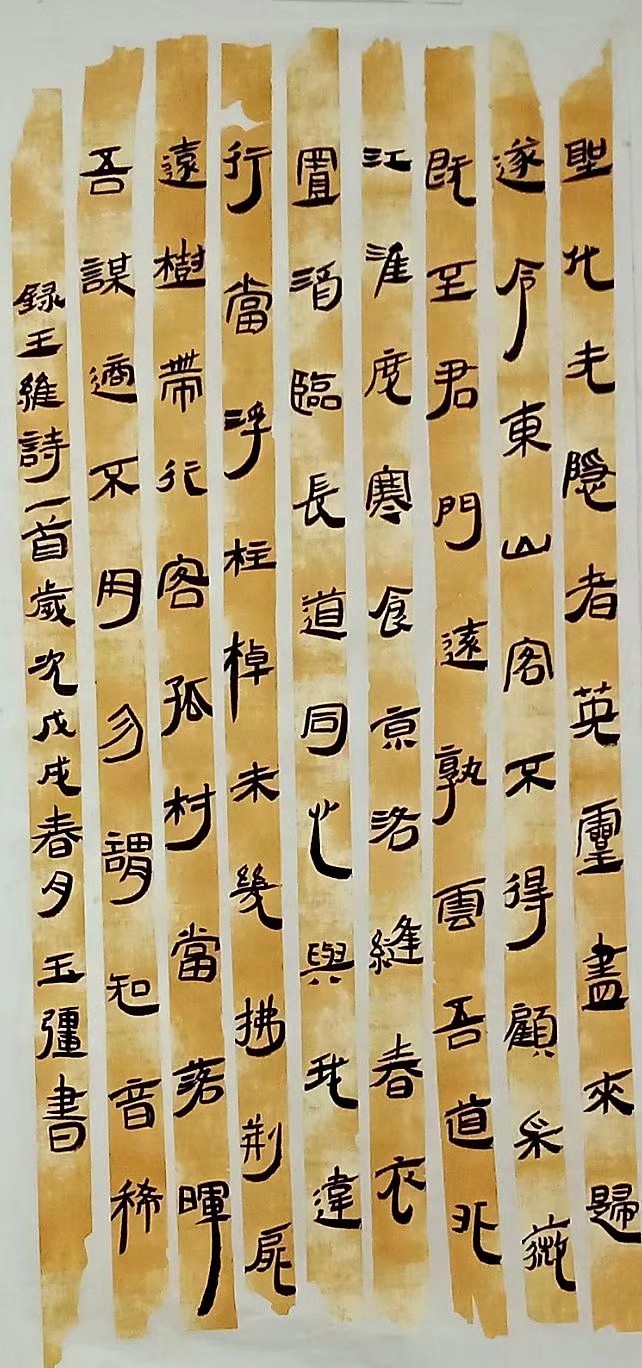 聖代无隐者英靈盡來歸
遂令東山客不得顧采薇
既至君門遠孰雲吾道非
江淮度寒食京洛縫春衣
置酒臨長道同心與我違
行當浮桂棹未幾拂荊扉
遠樹帶行客孤村當落暉
吾謀適不用勿謂知音稀
録王維詩一首歲次戊戌春月玉彊書